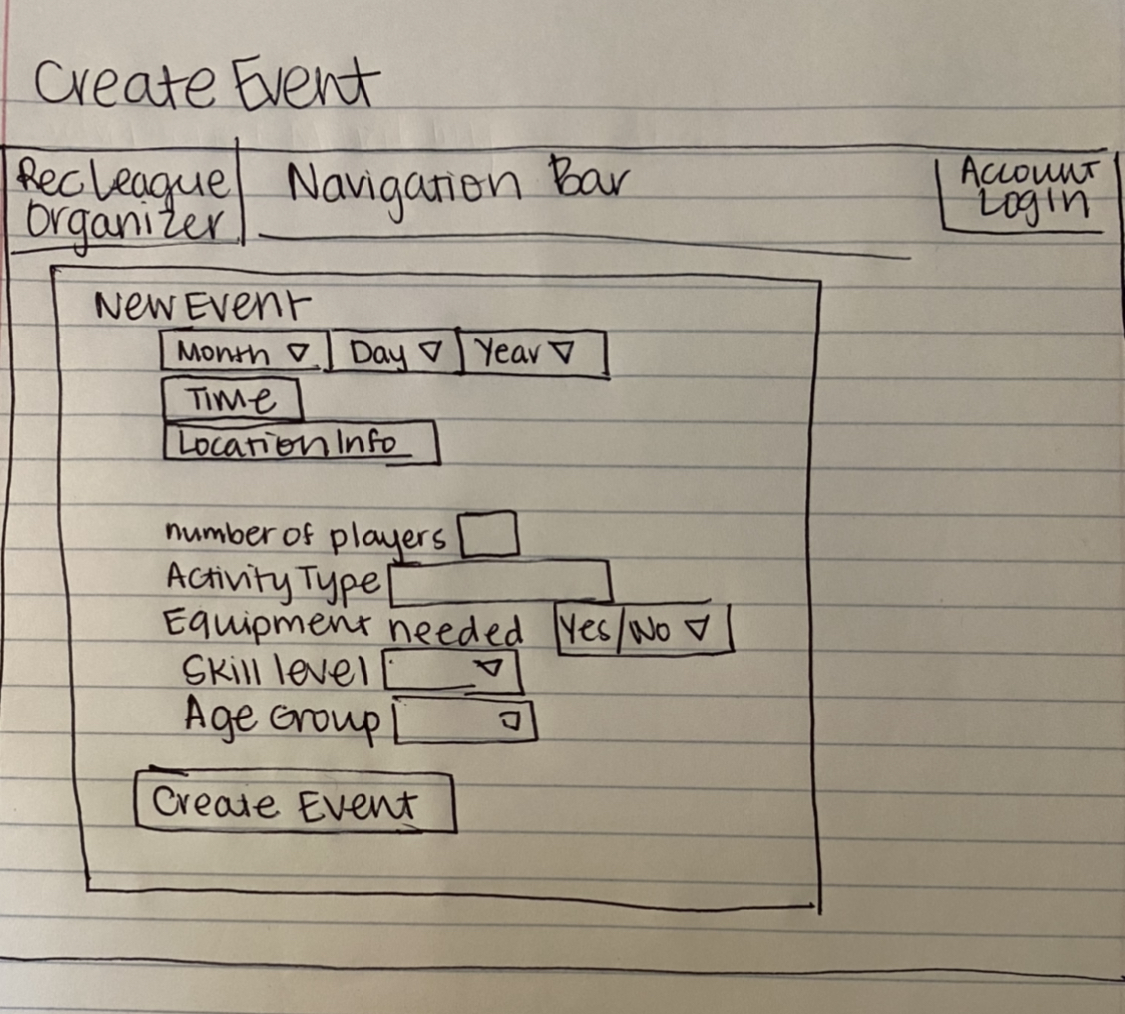 Create Event
Rec League
Organizer
Navigation Bar
Account
Login
New Event
Month Day Year
Time
Location Info
number of players
Activity Type
Equipment needed Yes/No
Skill level
Age Group
Create Event